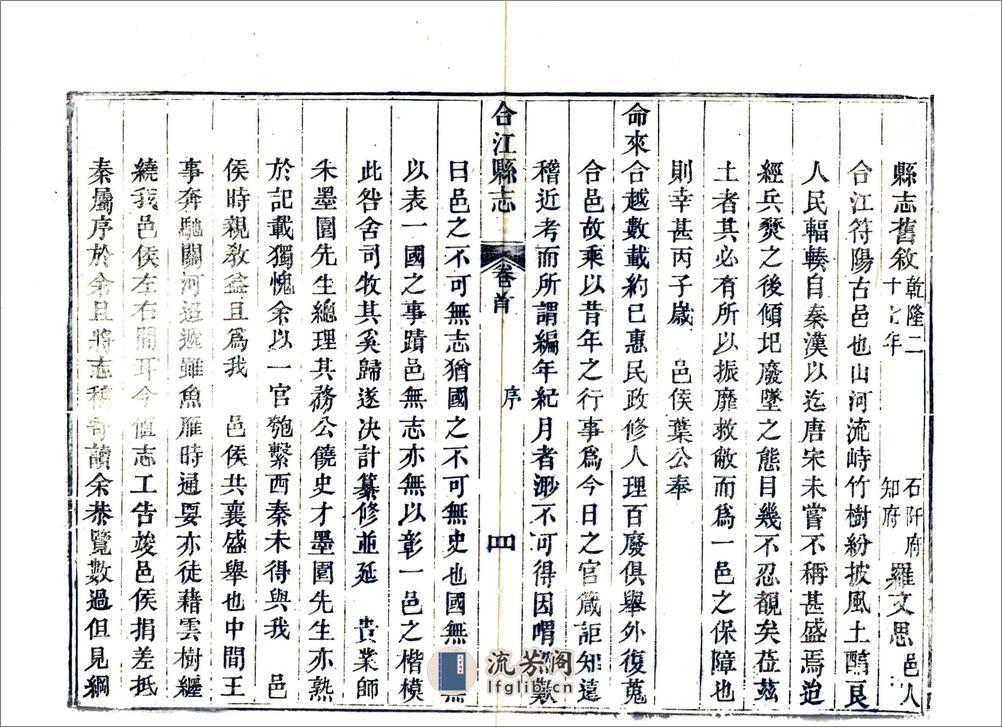 縣志舊敘乾隆二十七年 石阡府知府羅文思邑人
合江符陽古邑也山河流峙竹樹紛披風土醕良
人民輻輳自秦漢以迄唐宋未嘗不稱甚盛焉迨
經兵燹之後傾圮廢墜之態目幾不忍覩矣莅茲
土者其必有所以振靡救敝而為一邑之保障也
則幸甚丙子歲 邑侯葉公奉
命來合越數載約己惠民政修人理百廢俱舉外復蒐
合邑故乘以昔年之行事為今日之官箴詎知遠
稽近考而所謂編年紀月者渺不可得因喟數
合江縣志 卷首 序 四
曰邑之不可無志猶國之不可無史也國無
以表一國之事蹟邑無志亦無以彰一邑之楷模
此咎舍司牧其奚歸遂决計纂修並延 貴業師
朱墨圃先生總理其務公饒史才墨圃先生亦熟
於記載獨愧余以一官匏繫西秦未得與我 邑
侯時親敎益且爲我 邑侯共襄盛舉也中間王
事奔馳關河迢遞雖魚雁時通要亦徒藉雲樹纒
繞我邑侯左右間耳今值志工告竣邑侯捐差抵
秦屬序於余且將志稿寄讀余恭覽數過但見綱
流芳阁
lfglib.cn